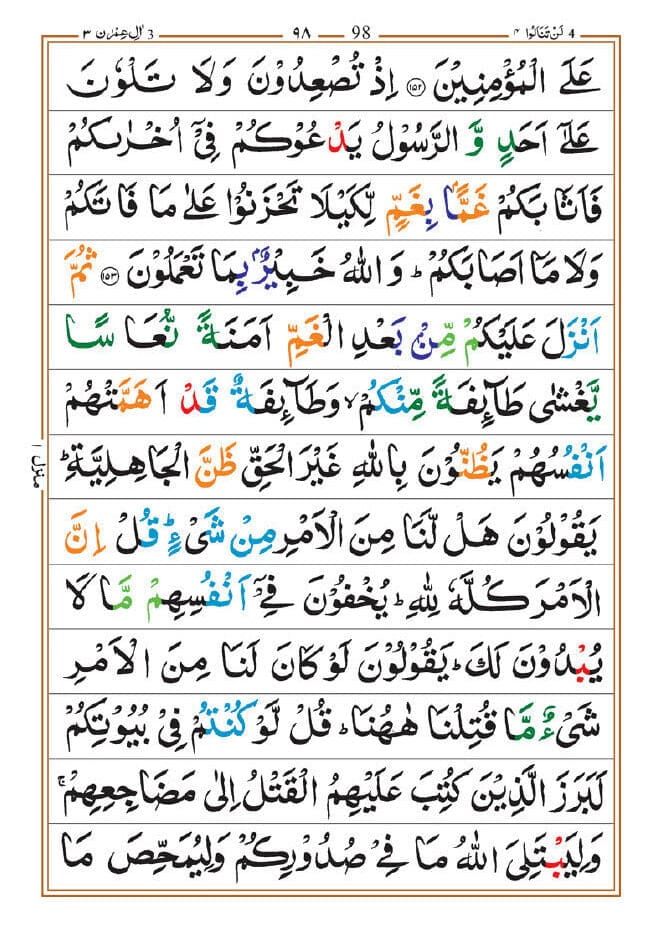 4 لَنۡ تَنَالُوا ۴ 98 ۹۸ 3 اٰلِ عِمۡرٰن ۳
عَلَى الۡمُؤۡمِنِيۡنَ ‏﴿۱۵۲﴾ اِذۡ تُصۡعِدُوۡنَ وَلَا تَلۡوٗنَ
عَلٰٓى اَحَدٍ وَّالرَّسُوۡلُ يَدۡعُوۡكُمۡ فِىۡۤ اُخۡرٰٮكُمۡ
فَاَثَابَكُمۡ غَمًّاۢ بِغَمٍّ لِّـكَيۡلَا تَحۡزَنُوۡا عَلٰى مَا فَاتَكُمۡ
وَلَا مَاۤ اَصَابَكُمۡ‌ؕ وَاللّٰهُ خَبِيۡرٌۢ بِمَا تَعۡمَلُوۡنَ ‏﴿۱۵۳﴾ ثُمَّ
اَنۡزَلَ عَلَيۡكُمۡ مِّنۡۢ بَعۡدِ الۡغَمِّ اَمَنَةً نُّعَاسًا
يَّغۡشٰى طَآٮِٕفَةً مِّنۡكُمۡ‌ۙ وَطَآٮِٕفَةٌ قَدۡ اَهَمَّتۡهُمۡ
اَنۡفُسُهُمۡ يَظُنُّوۡنَ بِاللّٰهِ غَيۡرَ الۡحَـقِّ ظَنَّ الۡجَـاهِلِيَّةِ‌ؕ
يَقُوۡلُوۡنَ هَلۡ لَّنَا مِنَ الۡاَمۡرِ مِنۡ شَىۡءٍ‌ؕ قُلۡ اِنَّ
الۡاَمۡرَ كُلَّهٗ لِلّٰهِ‌ؕ يُخۡفُوۡنَ فِىۡۤ اَنۡفُسِهِمۡ مَّا لَا
يُبۡدُوۡنَ لَكَ‌ؕ يَقُوۡلُوۡنَ لَوۡ كَانَ لَنَا مِنَ الۡاَمۡرِ
شَىۡءٌ مَّا قُتِلۡنَا هٰهُنَا ‌ؕ قُلۡ لَّوۡ كُنۡتُمۡ فِىۡ بُيُوۡتِكُمۡ
لَبَرَزَ الَّذِيۡنَ كُتِبَ عَلَيۡهِمُ الۡقَتۡلُ اِلٰى مَضَاجِعِهِمۡ‌ۚ
وَلِيَبۡتَلِىَ اللّٰهُ مَا فِىۡ صُدُوۡرِكُمۡ وَلِيُمَحِّصَ مَا
منزل ۱